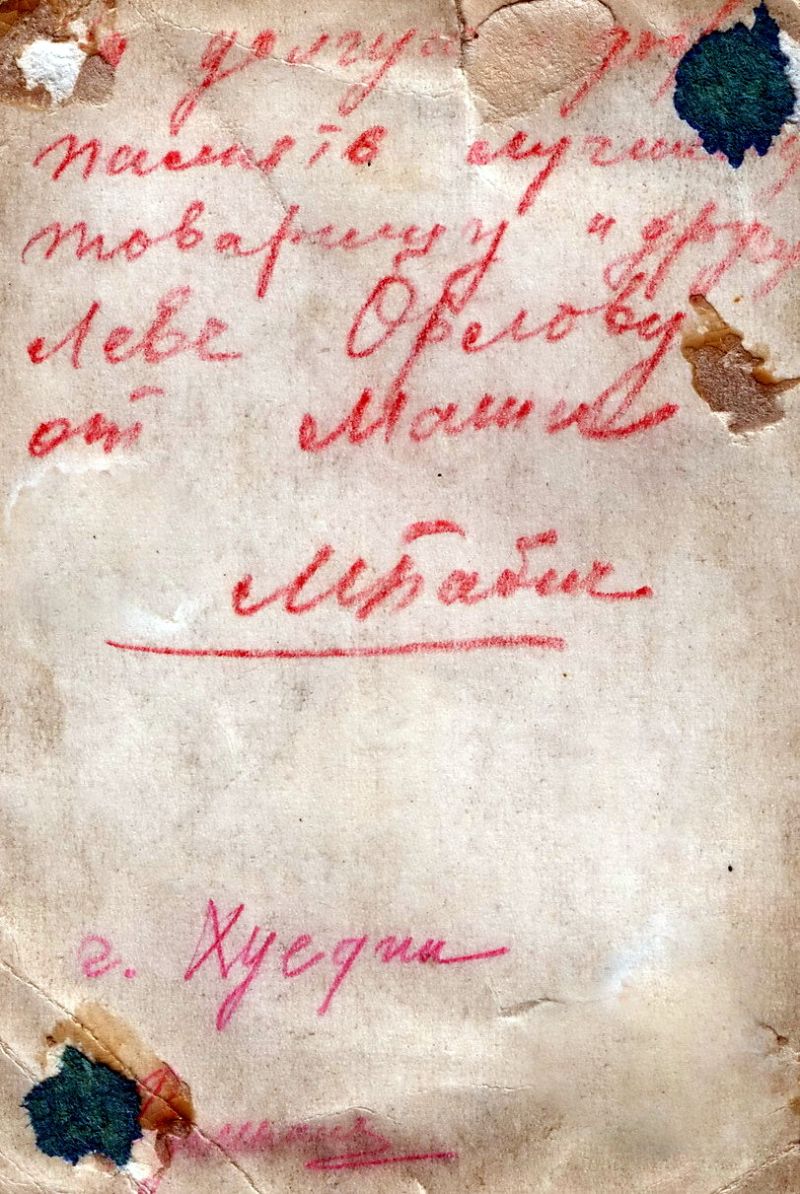 долгую
память лучшему
товарищу и другу
Лёве Орлову
от Маши
МБабич
г. Хуедин